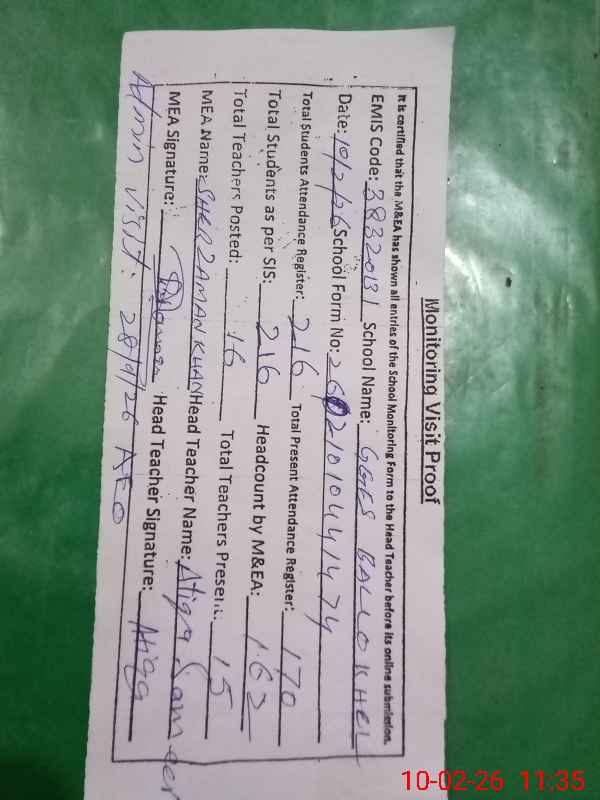 Monitoring Visit Proof
It is certified that the M&EA has shown all entries of the School Monitoring Form to the Head Teacher before its online submission.
EMIS Code: 38320131 School Name: GGHS BALLO KHEL
Date: 10/2/26 School Form No: 2602101041474
Total Students Attendance Register: 216 Total Present Attendance Register: 170
Total Students as per SIS: 216 Headcount by M&EA: 162
Total Teachers Posted: 16 Total Teachers Present: 15
MEA Name: SHERZAMAN KHAN Head Teacher Name: Atiqa Sameer
MEA Signature: Head Teacher Signature: Atiqa
Admn visit: 28/1/26 AEO
10-02-26 11:35